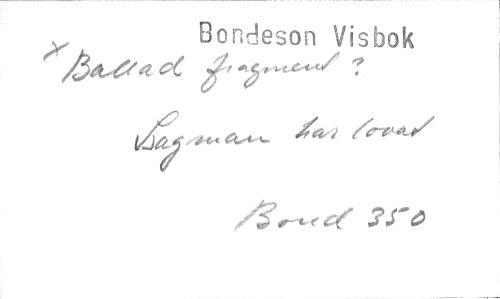 Bondeson Visbok
x Ballad fragment?
Lagman har lovat
Bond 350